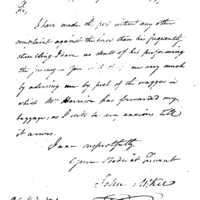 Sir,
I have made the post without any other
complaint against the horse than his frequently
stumbling I have no doubt of his performing
the journey. You will me very much
by advising me by post of the waggon in
which Mr Harrison has forwarded my
baggage, as I will be very anxious till
it arrives.
I am respectfully
Your Obedient Servant
John